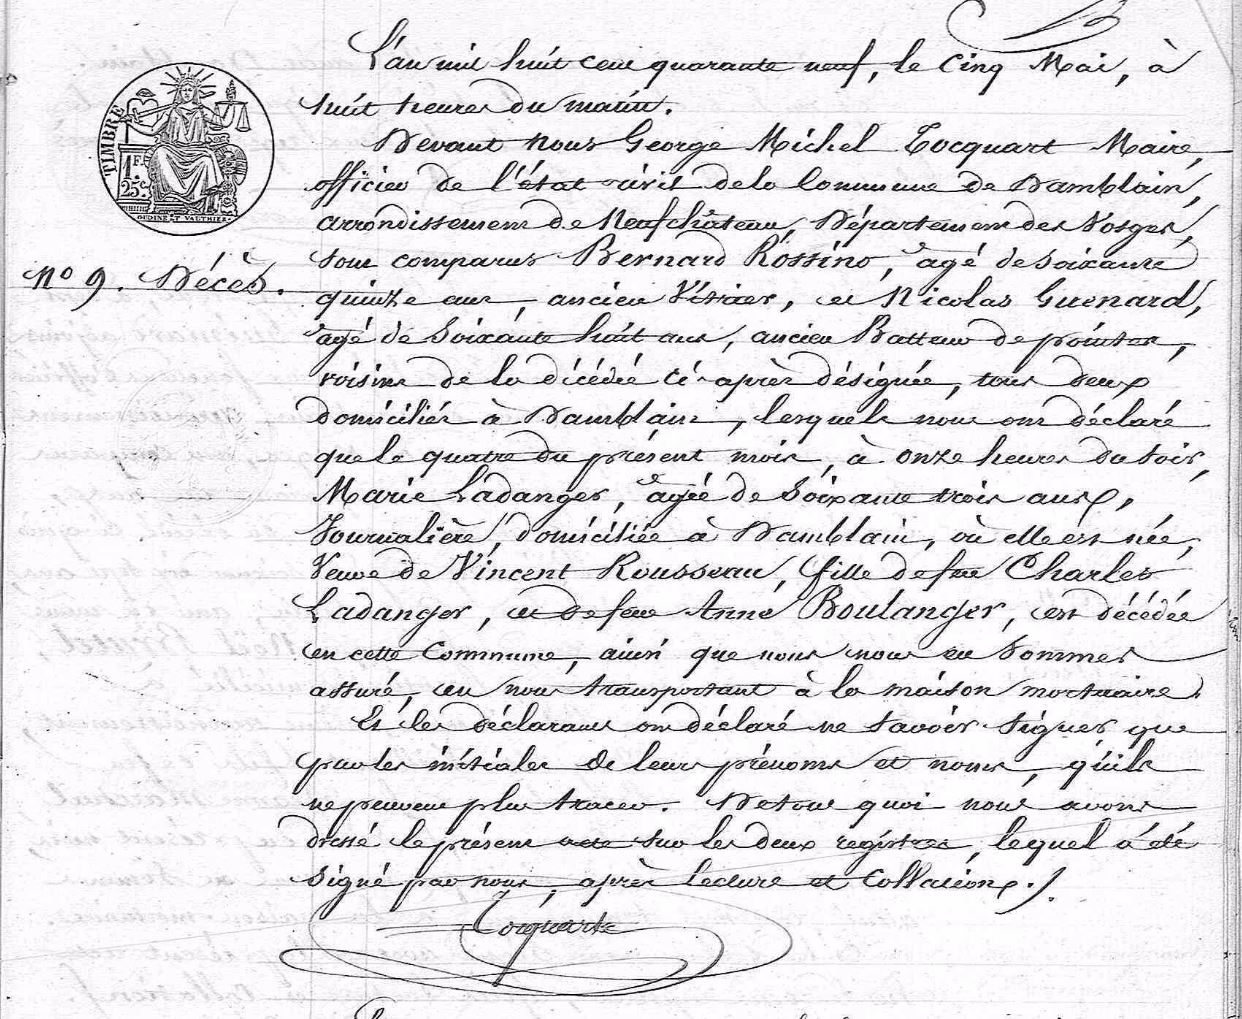 L'an mil huit cent quarante neuf, le Cinq Mai, à
huit heures du matin.
Devant nous George Michel Tocquart Maire,
officier de l'état civil de la Commune de Damblain,
TIMBRE
1F.
25c
OUDINE ET VAUTHIER
arrondissement de Neufchâteau, Département des Vosges,
sont comparus Bernard Rossino, âgé de soixante
No 9. Décès.
quinze ans, ancien Vitrier, et Nicolas Guenard,
âgé de soixante huit ans, ancien Batteur de pointes,
voisins de la décédée ci-après désignée, tous deux
domiciliés à Damblain, lesquels nous ont déclaré
que le quatre du présent mois, à onze heures du soir,
Marie Ladanger, âgée de soixante trois ans,
Journalière, domiciliée à Damblain, où elle est née,
Veuve de Vincent Rousseau, fille de feu Charles
Ladanger, et de feue Anne Boulanger, est décédée
en cette Commune, ainsi que nous nous en sommes
assuré, en nous transportant à la maison mortuaire.
Et les déclarants ont déclaré ne savoir signer que
par les initiales de leurs prénoms et noms, qu'ils
ne peuvent plus tracer. De tout quoi nous avons
dressé le présent acte sur les deux registres, lequel a été
signé par nous, après lecture et Collation.
Tocquart